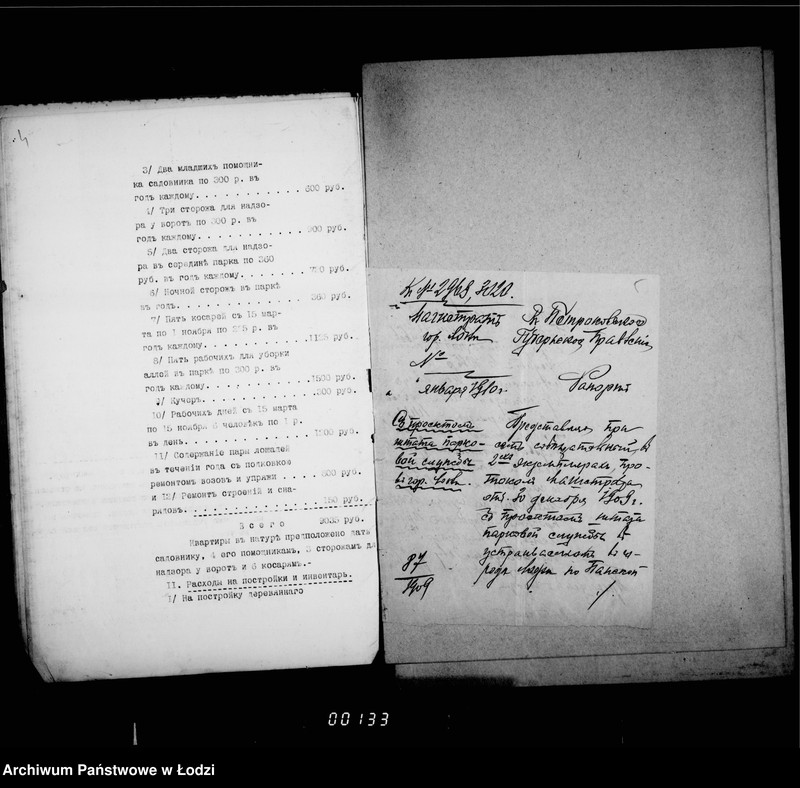 3/ Два младшихъ помощни-
ка садовника по 300 р. въ
годъ каждому. . . . . . . . . . . . 600 руб.
4/ Три сторожа для надзо-
ра у воротъ по 300 р. въ
годъ каждому. . . . . . . . . . . . 900 руб.
5/ Два сторожа для надзо-
ра въ срединѣ парка по 360
руб. въ годъ каждому. . . . . . . . 720 руб.
6/ Ночной сторожъ въ паркѣ
въ годъ. . . . . . . . . . . . . . 360 руб.
7/ Пять косарей съ 15 мар-
та по 1 ноября по 225 р. въ
годъ каждому. . . . . . . . . . . . 1125 руб.
8/ Пять рабочихъ для уборки
аллей въ паркѣ по 300 р. въ
годъ каждому. . . . . . . . . . . . 1500 руб.
9/ Кучеръ. . . . . . . . . . . . . 300 руб.
10/ Рабочихъ дней съ 15 марта
по 15 ноября 6 человѣкъ по 1 р.
въ день. . . . . . . . . . . . . . руб.
11/ Содержаніе пары лошадей
въ теченіи года съ подковкою
ремонтомъ возовъ и упряжи . . . . . 800 руб.
и 12/ Ремонтъ строеній и сна-
рядовъ. . . . . . . . . . . . . . . 150 руб.
Всего 9055 руб.
Квартиры въ натурѣ предположено дать
садовнику, 4 его помощникамъ, 3 сторожамъ для
надзора у воротъ и 6 косарямъ.-
II. Расходы на постройки и инвентарь.
1/ На постройку деревяннаго
К № 2968, 3020.
Магистратъ
гор. Лодзи
№
" января 1910 г.
Въ Петроковское
Губернское Правленіе
Рапортъ
Съ проектомъ
штата парко-
вой службы
въ гор. Лодзи.
Представляя при
семъ въ
2хъ экземплярахъ, про-
токолъ Магистрата
отъ 30 декабря 1909 г.
съ проектомъ штата
парковой службы въ
устраиваемомъ въ го-
родѣ Лодзи по Панской
./.
87
1909
00133
Archiwum Państwowe w Łodzi